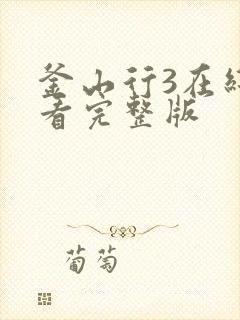 釜山行3在线
看完整版
葡萄